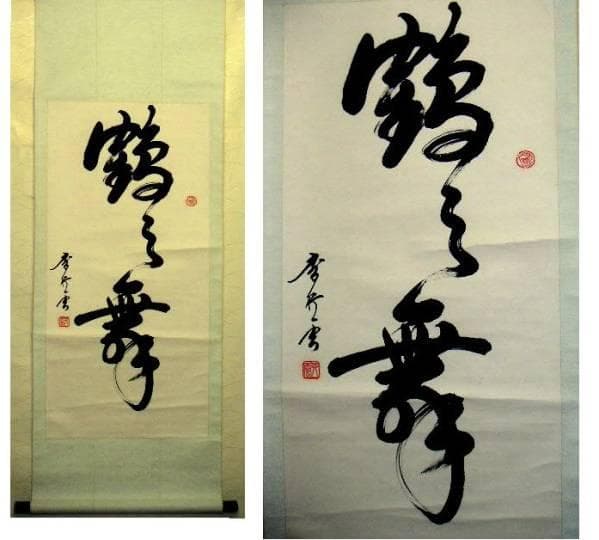 鶴之舞
鶴之舞